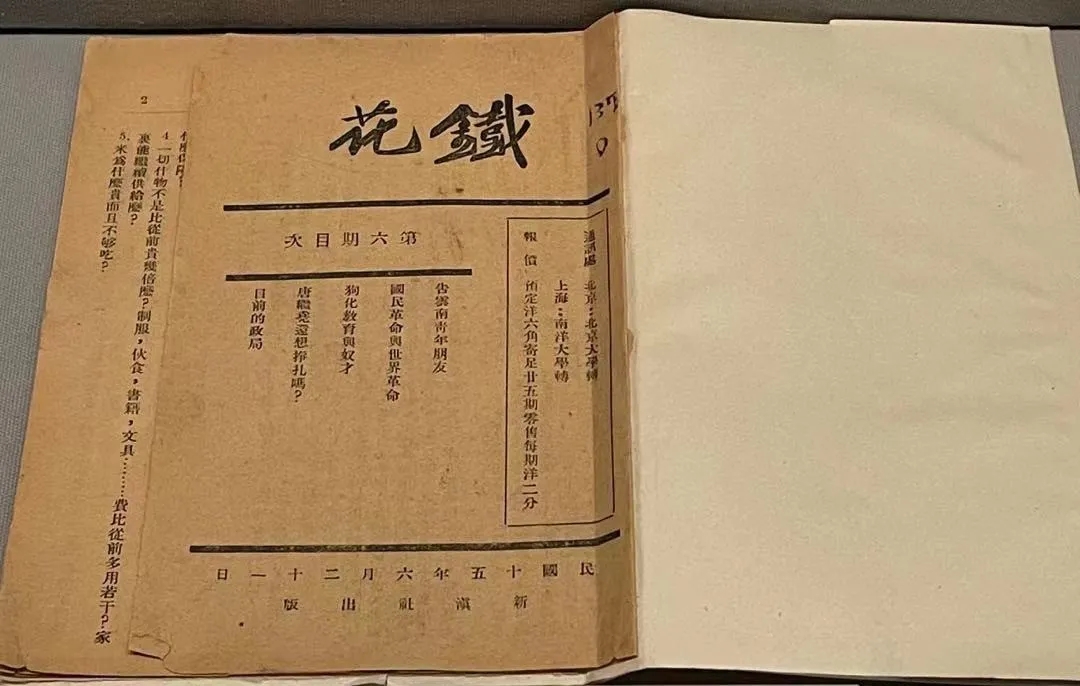 鐵花
通訊處 北京：北京大學轉
上海：南洋大學轉
報價 預定洋六角寄足廿五期零售每期洋二分
第六期目次
告雲南靑年朋友
國民革命與世界革命
狗化敎育與奴才
唐繼堯還想掙扎嗎？
目前的政局
民國十五年六月二十一日
新滇社出版
2
4. 一切什物不是比從前貴幾倍麼？制服，伙食，書籍，文具………費比從前多用若干？家
裏能繼續供給麼？
5. 米爲什麼貴而且不够吃？